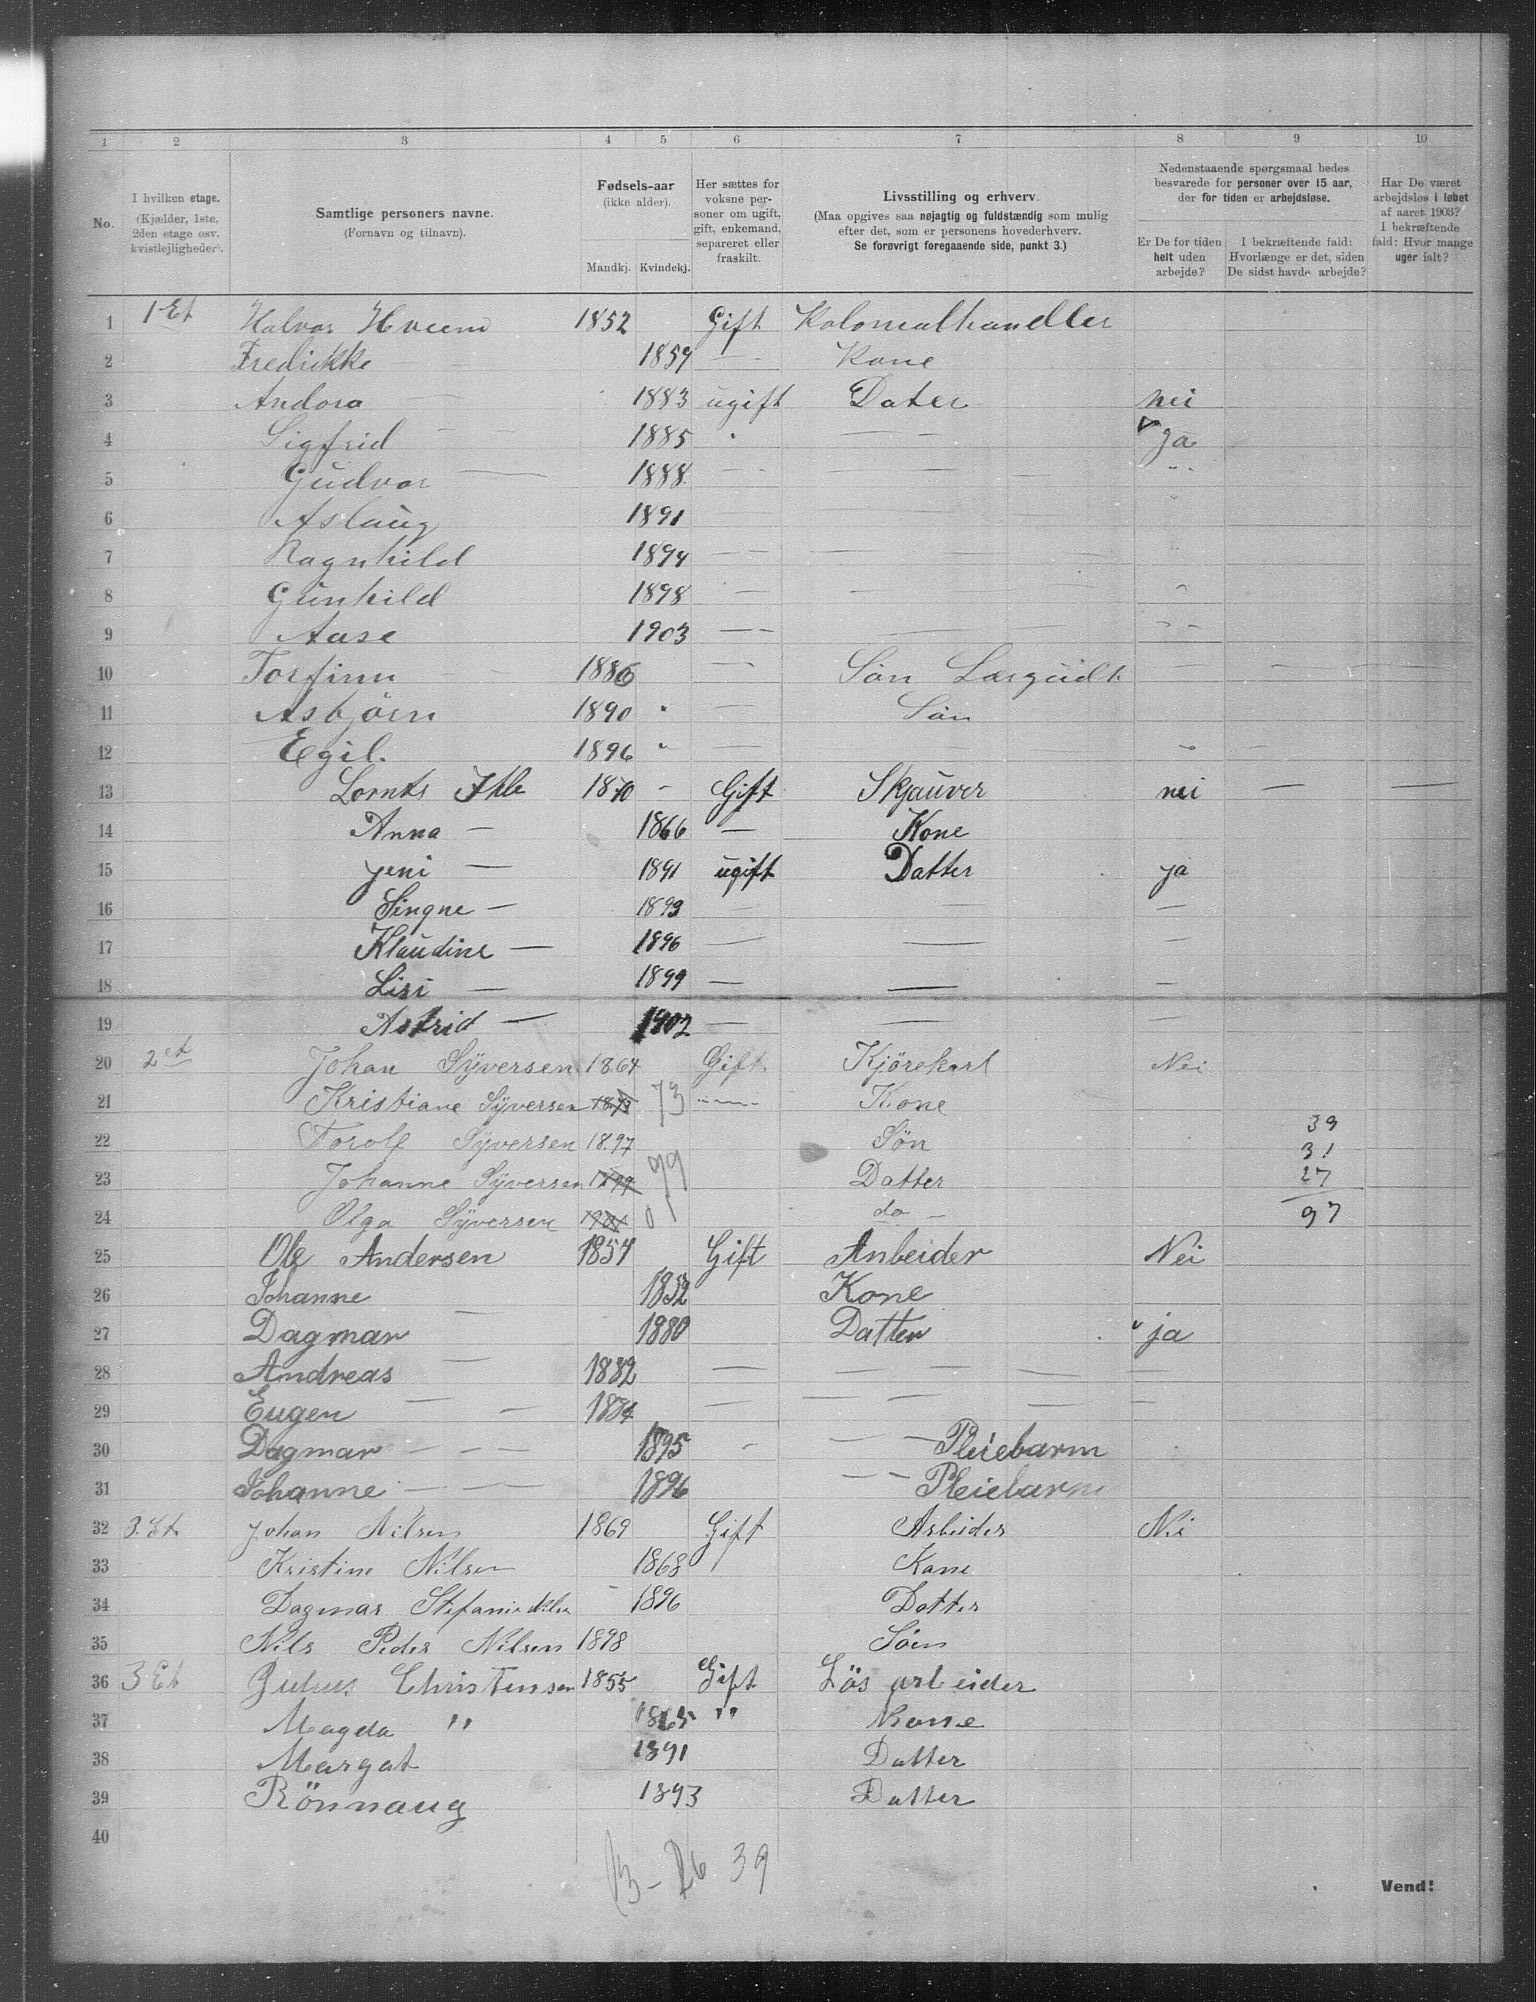 1 2 3 4 5 6 7 8 9 10
No.
I hvilken etage.
(Kjælder, 1ste,
2den etage osv.
kvistlejligheder).
Samtlige personers navne.
(Fornavn og tilnavn).
Fødsels-aar
(ikke alder).
Mandkj. Kvindekj.
Her sættes for
voksne per-
soner om ugift,
gift, enkemand,
separeret eller
fraskilt.
Livsstilling og erhverv.
(Maa opgives saa nøjagtig og fuldstændig som mulig
efter det, som er personens hovederhverv.
Se forøvrigt foregaaende side, punkt 3.)
Nedenstaaende spørgsmaal bedes
besvarede for personer over 15 aar,
der for tiden er arbejdsløse.
Er De for tiden
helt uden
arbejde?
I bekræftende fald:
Hvorlænge er det, siden
De sidst havde arbejde?
Har De været
arbejdsløs i løbet
af aaret 1903?
I bekræftende
fald: Hvor mange
uger ialt?
1 1 Et Halvor Hveem 1852 Gift Kolonialhandler
2 Fredrikke — 1859 — Kone
3 Andora — 1883 ugift Dater nei
4 Sigfrid — — 1885 " — — Ja
5 Gudvor — 1888 — — — "
6 Aslaug 1891
7 Ragnhild 1894 — — —
8 Gunhild 1898 — — —
9 Aase 1903 — —
10 Torfinn — — 1886 — Søn — — —
11 Asbjörn 1890 " — Søn
12 Egil. 1896 " — —
13 Lornts 1870 — Gift Skjauver nei — —
14 Anna — 1866 — Kone
15 Jeni — 1891 ugift Datter ja
16 Singne — 1893 — — —
17 Klaudine — 1896 — — —
18 Lisi — 1899 — — —
19 Astrid — 1902 — — —
20 2 et Johan Syversen 1864 Gift Kjörekarl Nei
21 Kristiane Syversen 1873 73 — Kone
22 Torolf Syversen 1897 Søn 39
31
23 Johanne Syversen 1899 99 Datter 27
24 Olga Syversen 1901 01 do — 97
25 Ole Andersen 1854 Gift Anbeider Nei
26 Johanne 1852 Kone
27 Dagmar — 1880 Datter ja
28 Andreas — 1882 — — — — —
29 Eugen — — 1884 — — — — —
30 Dagmar — — — 1895 — — — Pleiebarm
31 Johanne — — — 1896 — — Pleiebarn
32 3. Et Johan Nilsen 1869 Gift Arbeider Nei
33 Kristine Nilsen 1868 Kane
34 Dagmar Stefanie Nilsen 1896 Dotter
35 Nils Peder Nilsen 1898 Søen
36 3 Et Julius Christensen 1855 Gift Lös arbeider
37 Magda " 1865 " Kone
38 Margat 1891 Datter
39 Rönnaug 1893 Datter
40
13 - 26 39
Vend!